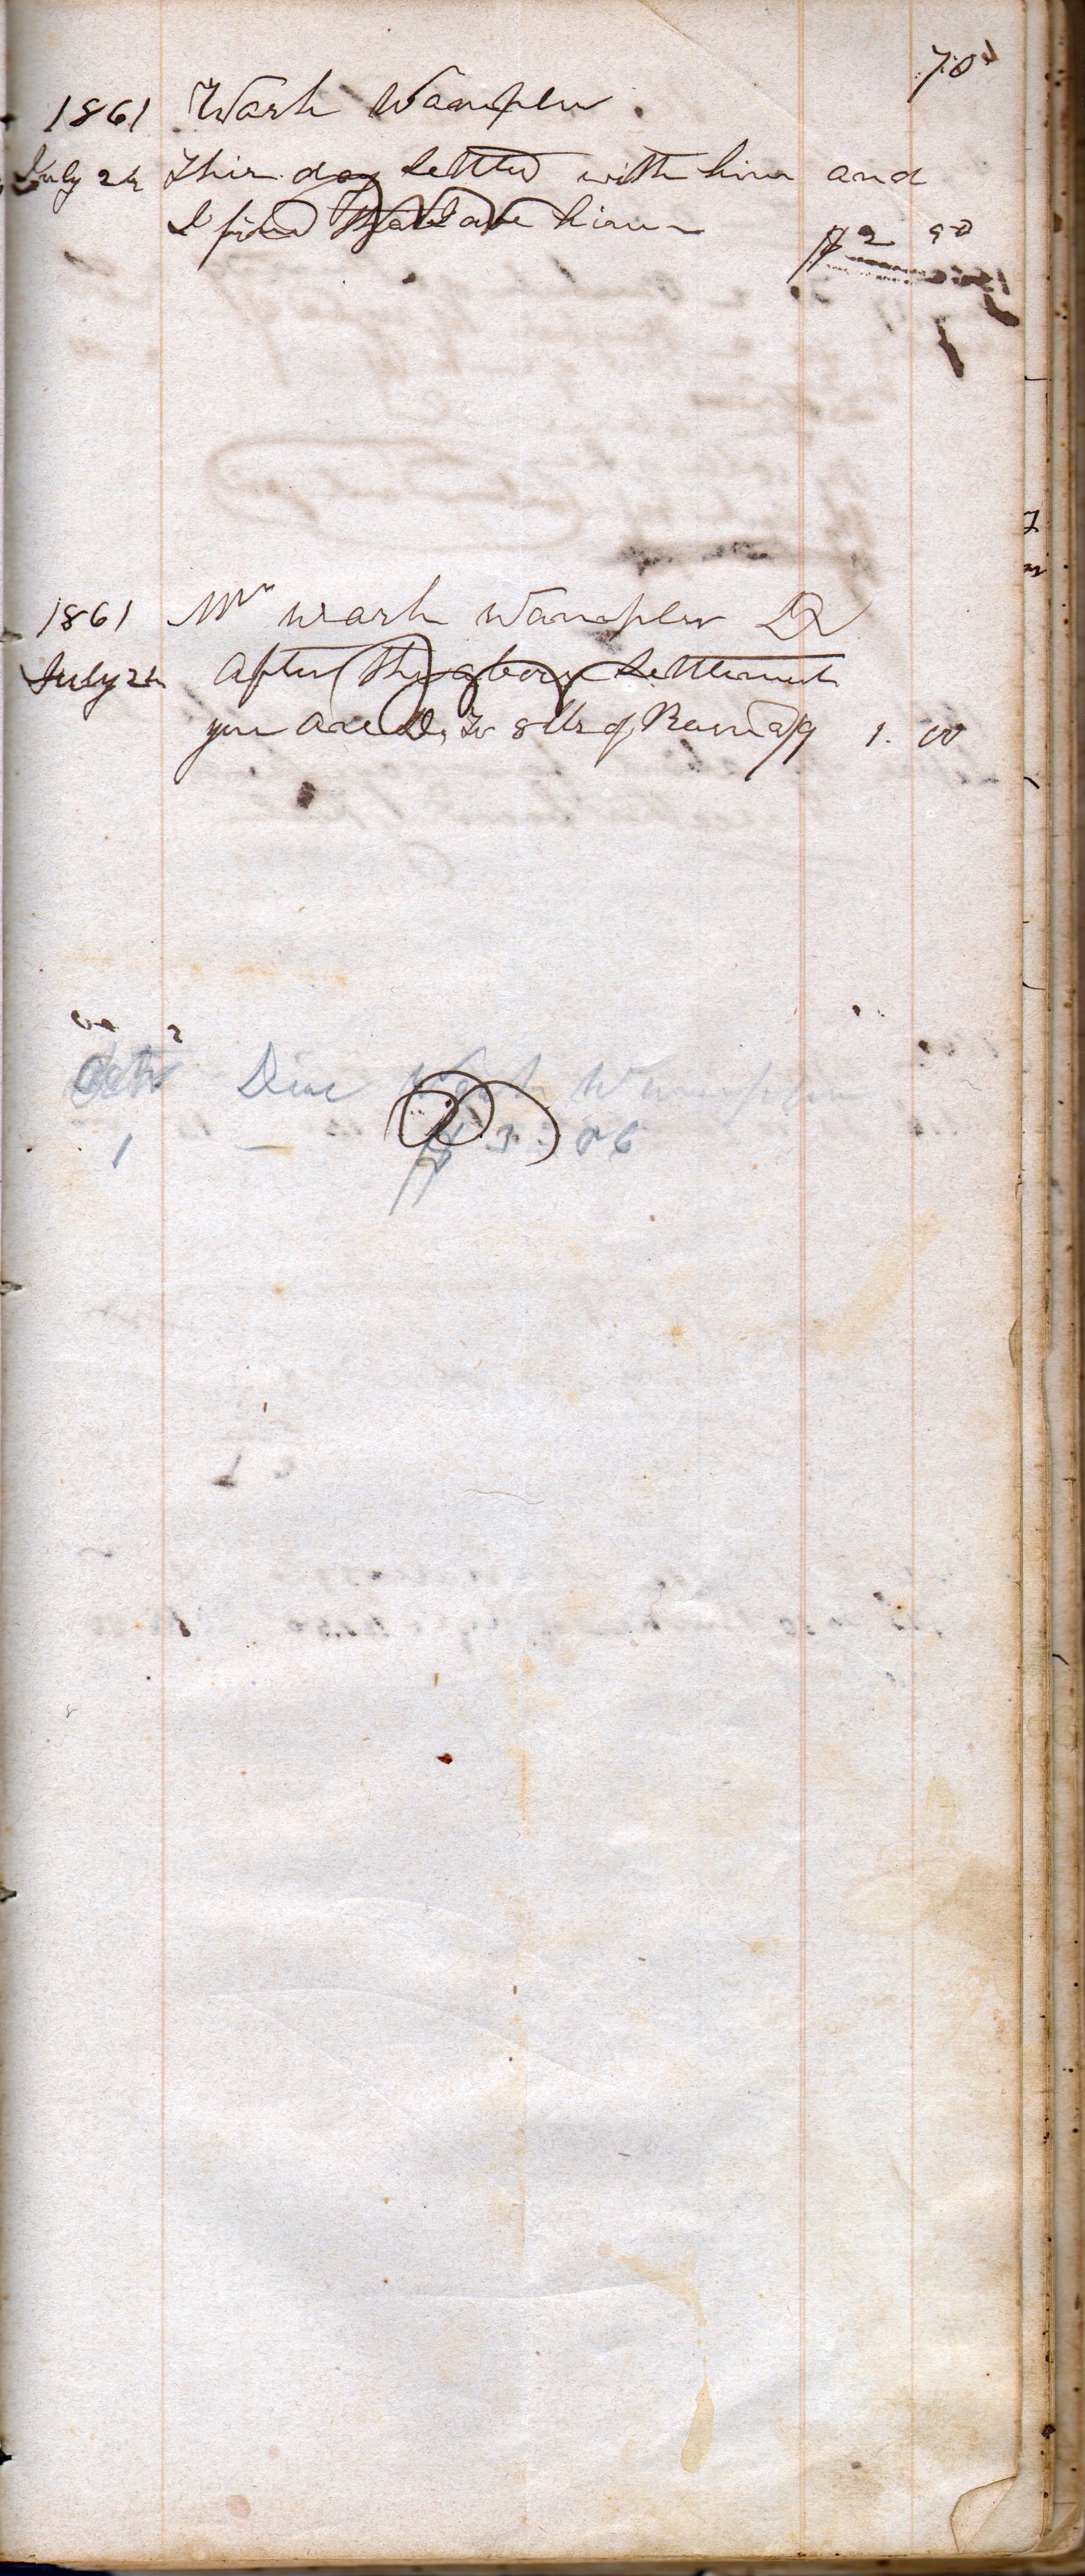 70
1861 Wash Wampler
July 24 This day settled with him and
I find that I owe him
$2 90
1861 Mr Wash Wampler Dr
July 24 After the above settlement
you are Dr to 8 lbs of Bacon 1.00
Octr Due Wash Wampler
1 — $3.06